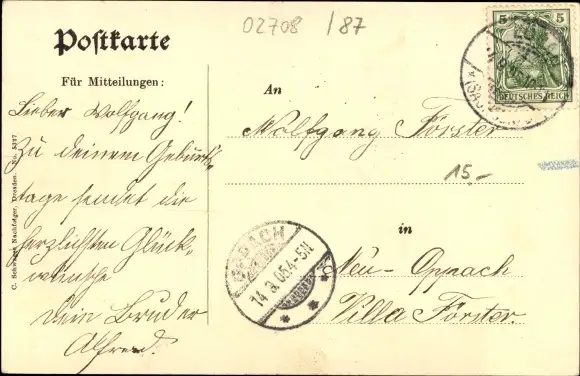 02708 / 87
Postkarte
Für Mitteilungen:
Lieber Wolfgang!
Zu deinem Geburts-
tage sendet die
herzlichsten Glück-
wünsche
Dein Bruder
Alfred.
C. Schwager Nachfolger, Dresden.
An
Wolfgang Förster
15.-
in
Neu-Oppach
Villa Förster.
5 5
DEUTSCHES REICH
OPPACH
14.8.05.4-5N